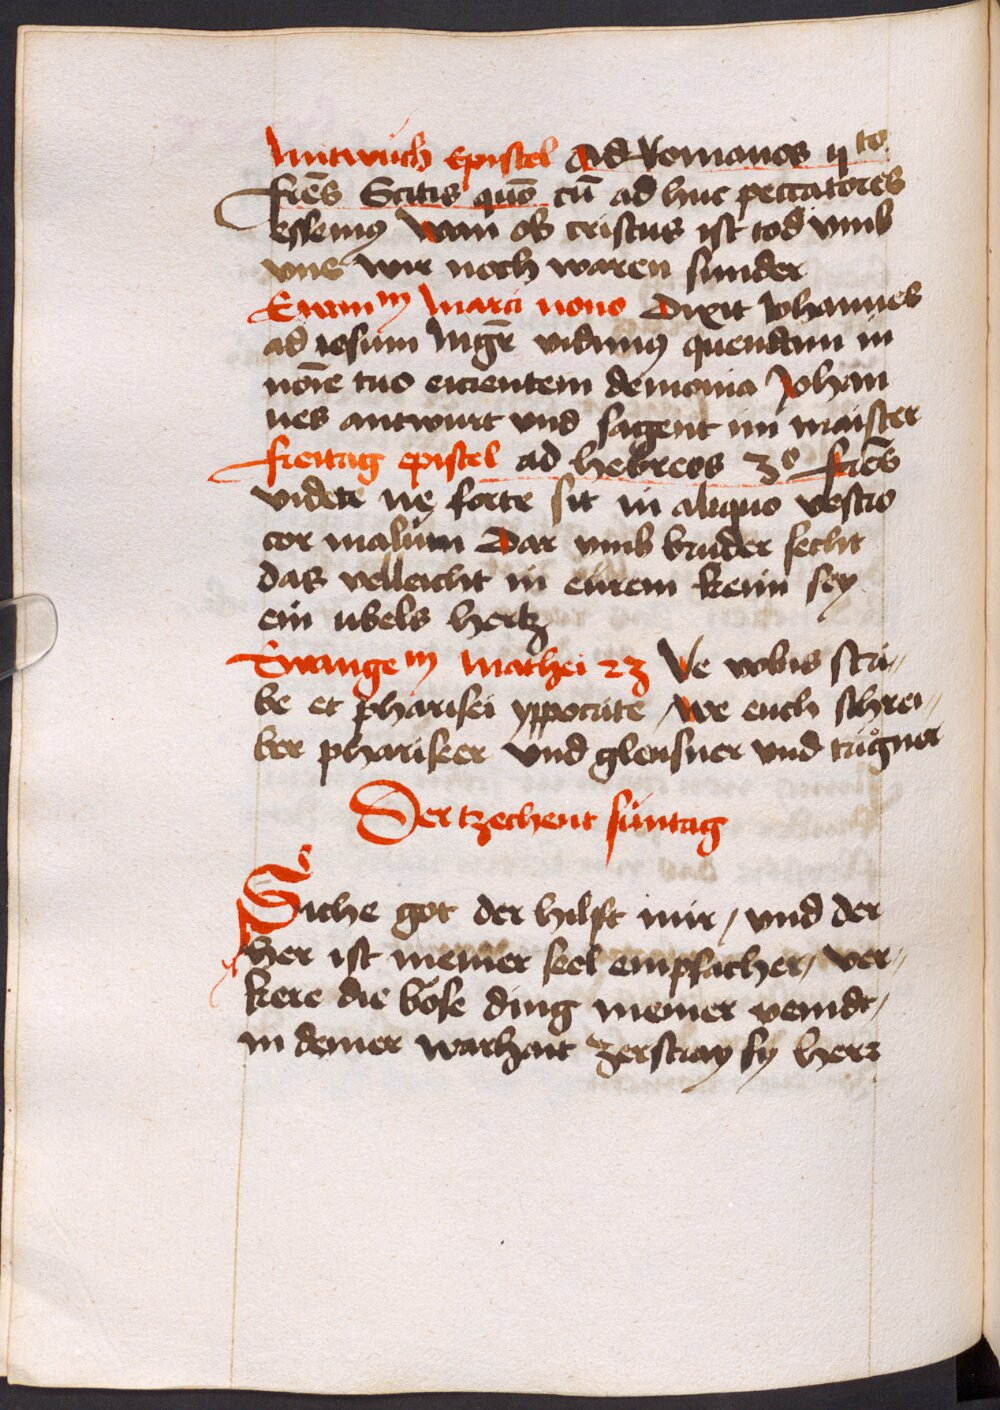 Mitwuch epistel Ad Romanos ij to
Frēs Scitis quō cū ad huc peccatores
essemꝯ wan ob cristus ist tod vmb
vns wir noch waren sunder
Ewan m Marci nono Dixit Johannes
ad iesum Mgr̄ vidimꝯ quendam in
noīe tuo eicientem demonia Johan
nes antwurt vnd sagent im maister
freitag epistel ad hebreos 3o frēs
videte ne forte sit in aliquo vestro
cor malum Dar vmb bruder secht
das velleicht in eurem keim sey
ein ubels hertz
Ewange m Mathei 23 Ve vobis scri〃
be et pharisei yppocrite / we euch schrei〃
ber phariseer vnd gleusner vnd trugner
Der tzechent suntag
Siche got der hilfft mir / vnd der
her ist meiner seel empfacher / ver〃
kere die böse ding meiner veindt /
in deiner warhait zerstray sy herr